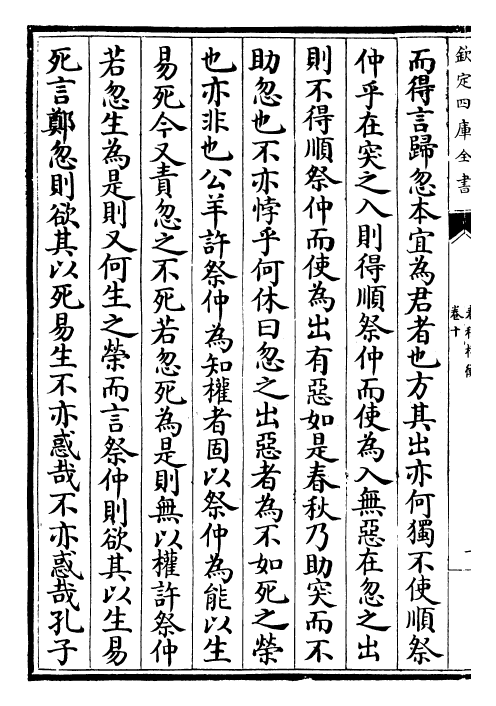 欽定四庫全書
卷十
而得言歸忽本宜為君者也方其出亦何獨不使順祭
仲乎在突之入則得順祭仲而使為入無惡在忽之出
則不得順祭仲而使為出有惡如是春秋乃助突而不
助忽也不亦悖乎何休曰忽之出惡者為不如死之榮
也亦非也公羊許祭仲為知權者固以祭仲為能以生
易死今又責忽之不死若忽死為是則無以權許祭仲
若忽生為是則又何生之榮而言祭仲則欲其以生易
死言鄭忽則欲其以死易生不亦惑哉不亦惑哉孔子